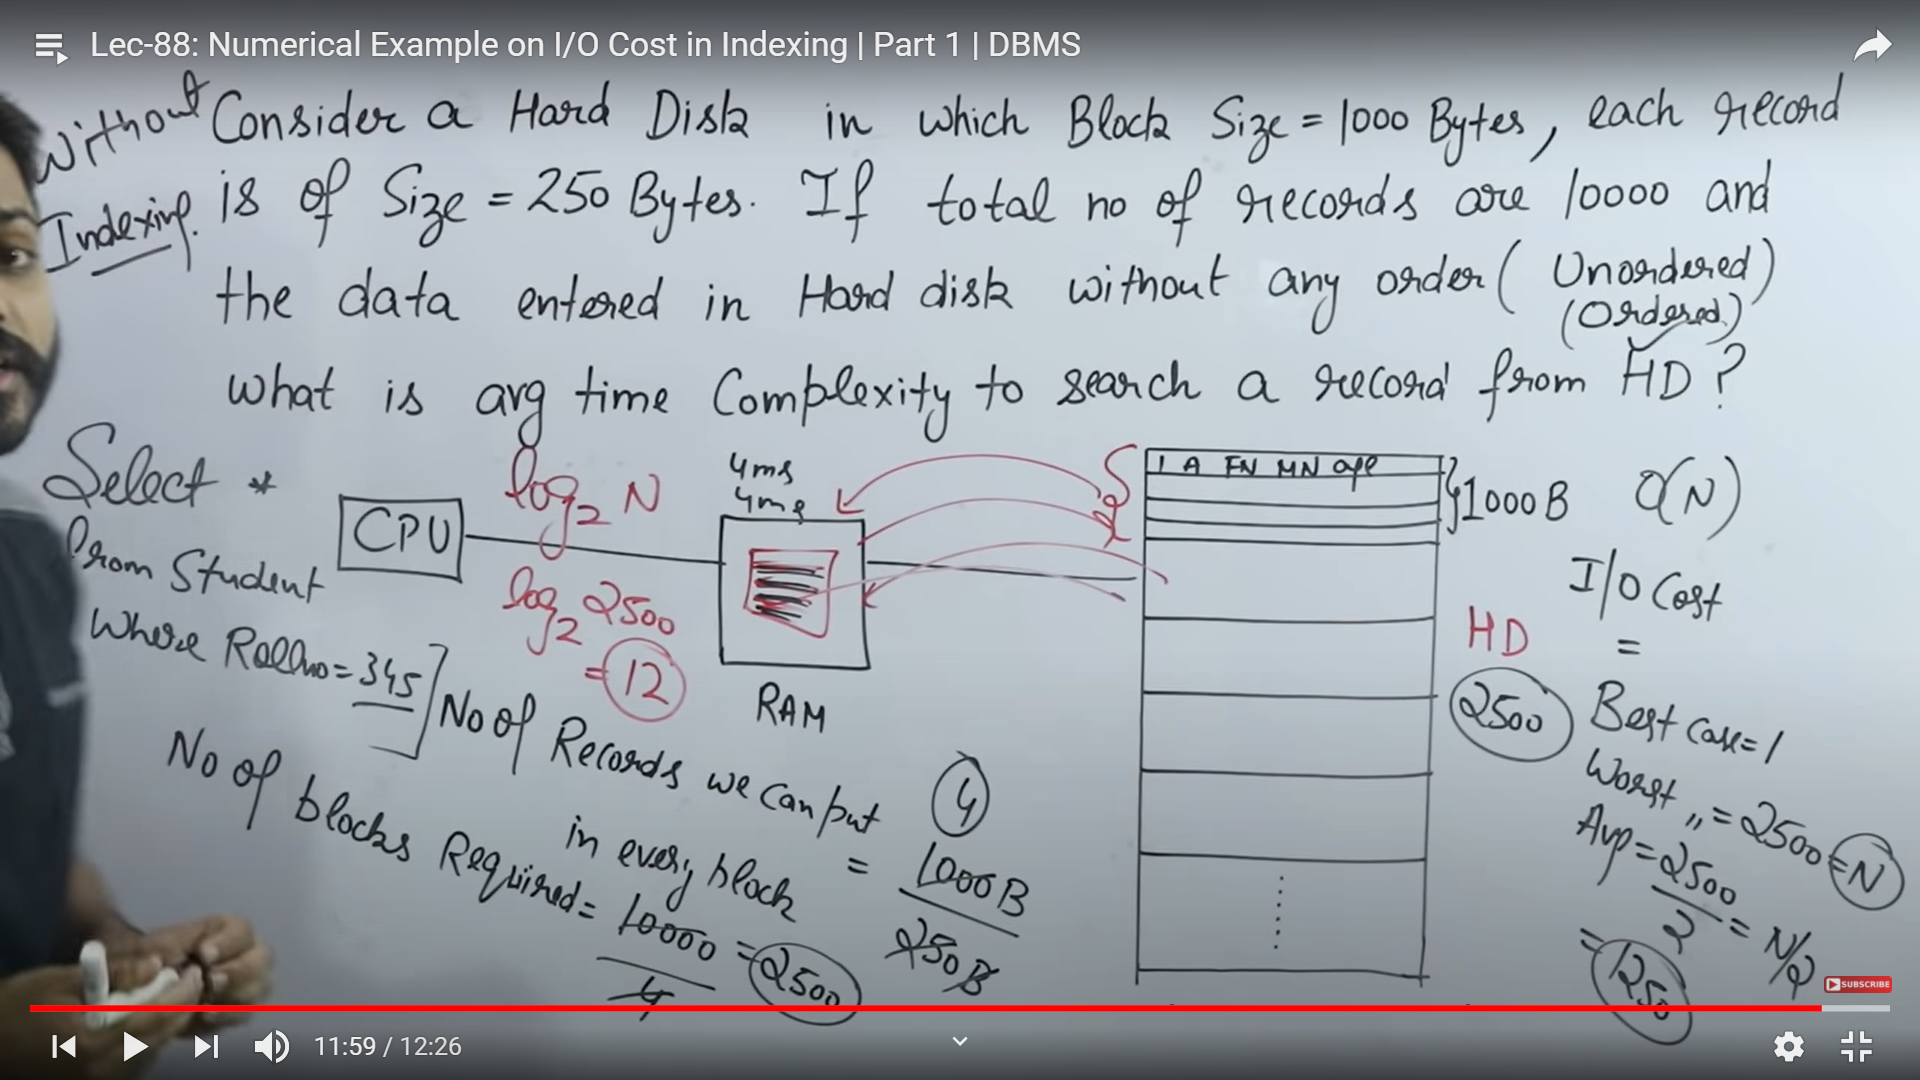 Lec-88: Numerical Example on I/O Cost in Indexing | Part 1 | DBMS
Without
Indexing.
Consider a Hard Disk in which Block Size = 1000 Bytes, each record
is of Size = 250 Bytes. If total no of records are 10000 and
the data entered in Hard disk without any order (Unordered)
(Ordered)
what is avg time Complexity to search a record from HD?
Select *
from Student
Where Rollno = 345
CPU
log2 N
log2 2500
= 12
4ms
4ms
RAM
1 A FN MN
1000B
O(N)
I/O Cost
=
HD
2500
Best Case = 1
Worst ,, = 2500 = N
Avg = 2500/2 = N/2
= 1250
No of Records we can put
in every block = 1000B/250B
4
No of blocks Required = 10000/4 = 2500
SUBSCRIBE
11:59 / 12:26